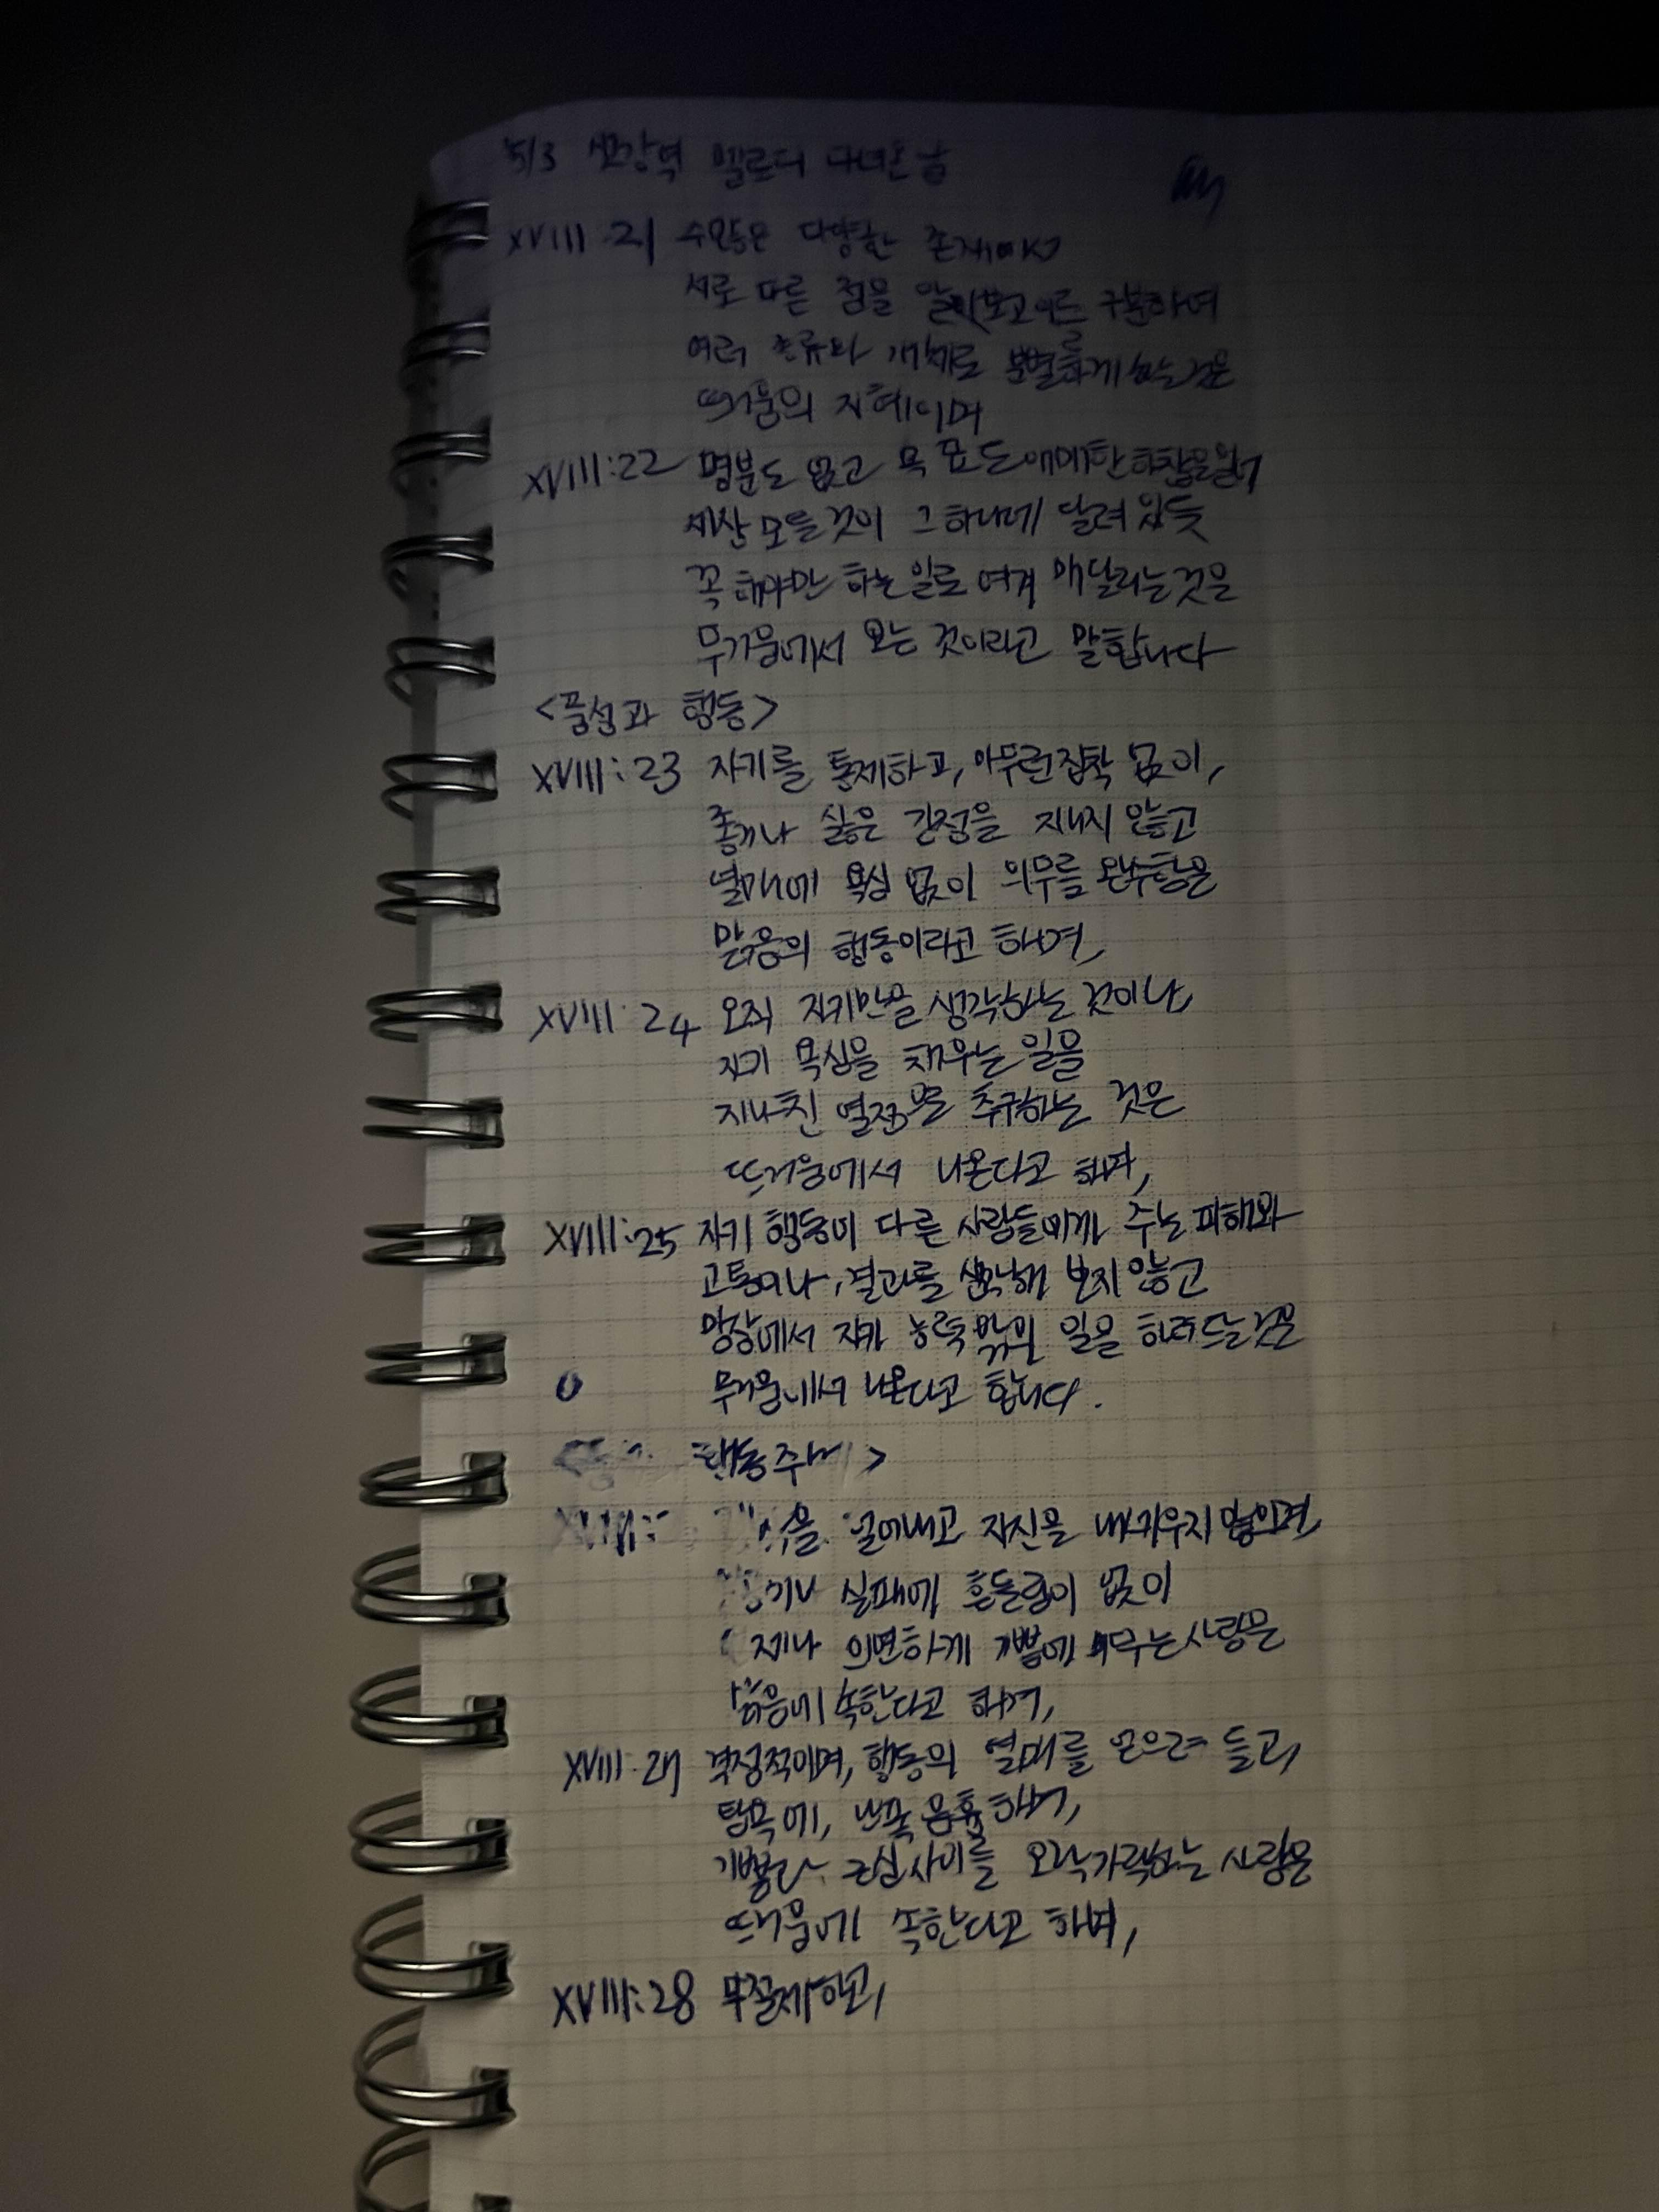 5/3
XVIII:21 수많은 다양한 존재에서
서로 다른 점을 구분하여
여러 종류와 개체로 분별하게 하는 것은
뜨거움의 지혜이며
XVIII:22 명분도 없고 목표도 애매한 하찮은 일이
세상 모든 것이 그 하나에 달려 있듯
꼭 해야만 하는 일로 여겨 매달리는 것은
무거움에서 오는 것이라고 말합니다
<품성과 행동>
XVIII:23 자기를 통제하고, 아무런 집착 없이,
좋거나 싫은 감정을 지니지 않고
열매에 욕심 없이 의무를 완수함은
맑음의 행동이라고 하며,
XVIII:24 오직 자기만을 생각하는 것이나
자기 욕심을 채우는 일을
지나친 열정으로 추구하는 것은
뜨거움에서 나온다고 하며,
XVIII:25 자기 행동이 다른 사람들에게 주는 피해와
고통이나, 결과를 생각해 보지 않고
망상에서 자기 능력 밖의 일을 하려 드는 것은
무거움에서 나온다고 합니다.
행동주체>
XVIII: 을 덜어내고 자신을 내세우지 않으며
실패에 흔들림이 없이
제나 의연하게 기쁨에 머무는 사람은
맑음에 속한다고 하며,
XVIII:27 격정적이며, 행동의 열매를 얻으려 들고,
탐욕에, 난폭 음흉하며,
기쁨과 근심 사이를 오락가락하는 사람은
뜨거움에 속한다고 하며,
XVIII:28 무절제하고,